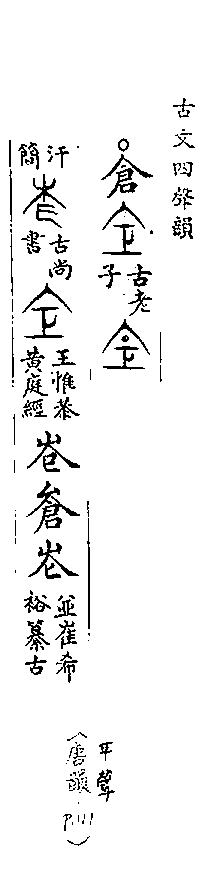 古文四聲韻
倉
古老
子
汗
簡
古尚
書
王惟恭
黃庭經
並崔希
裕纂古
平聲
(唐韻 P.111)